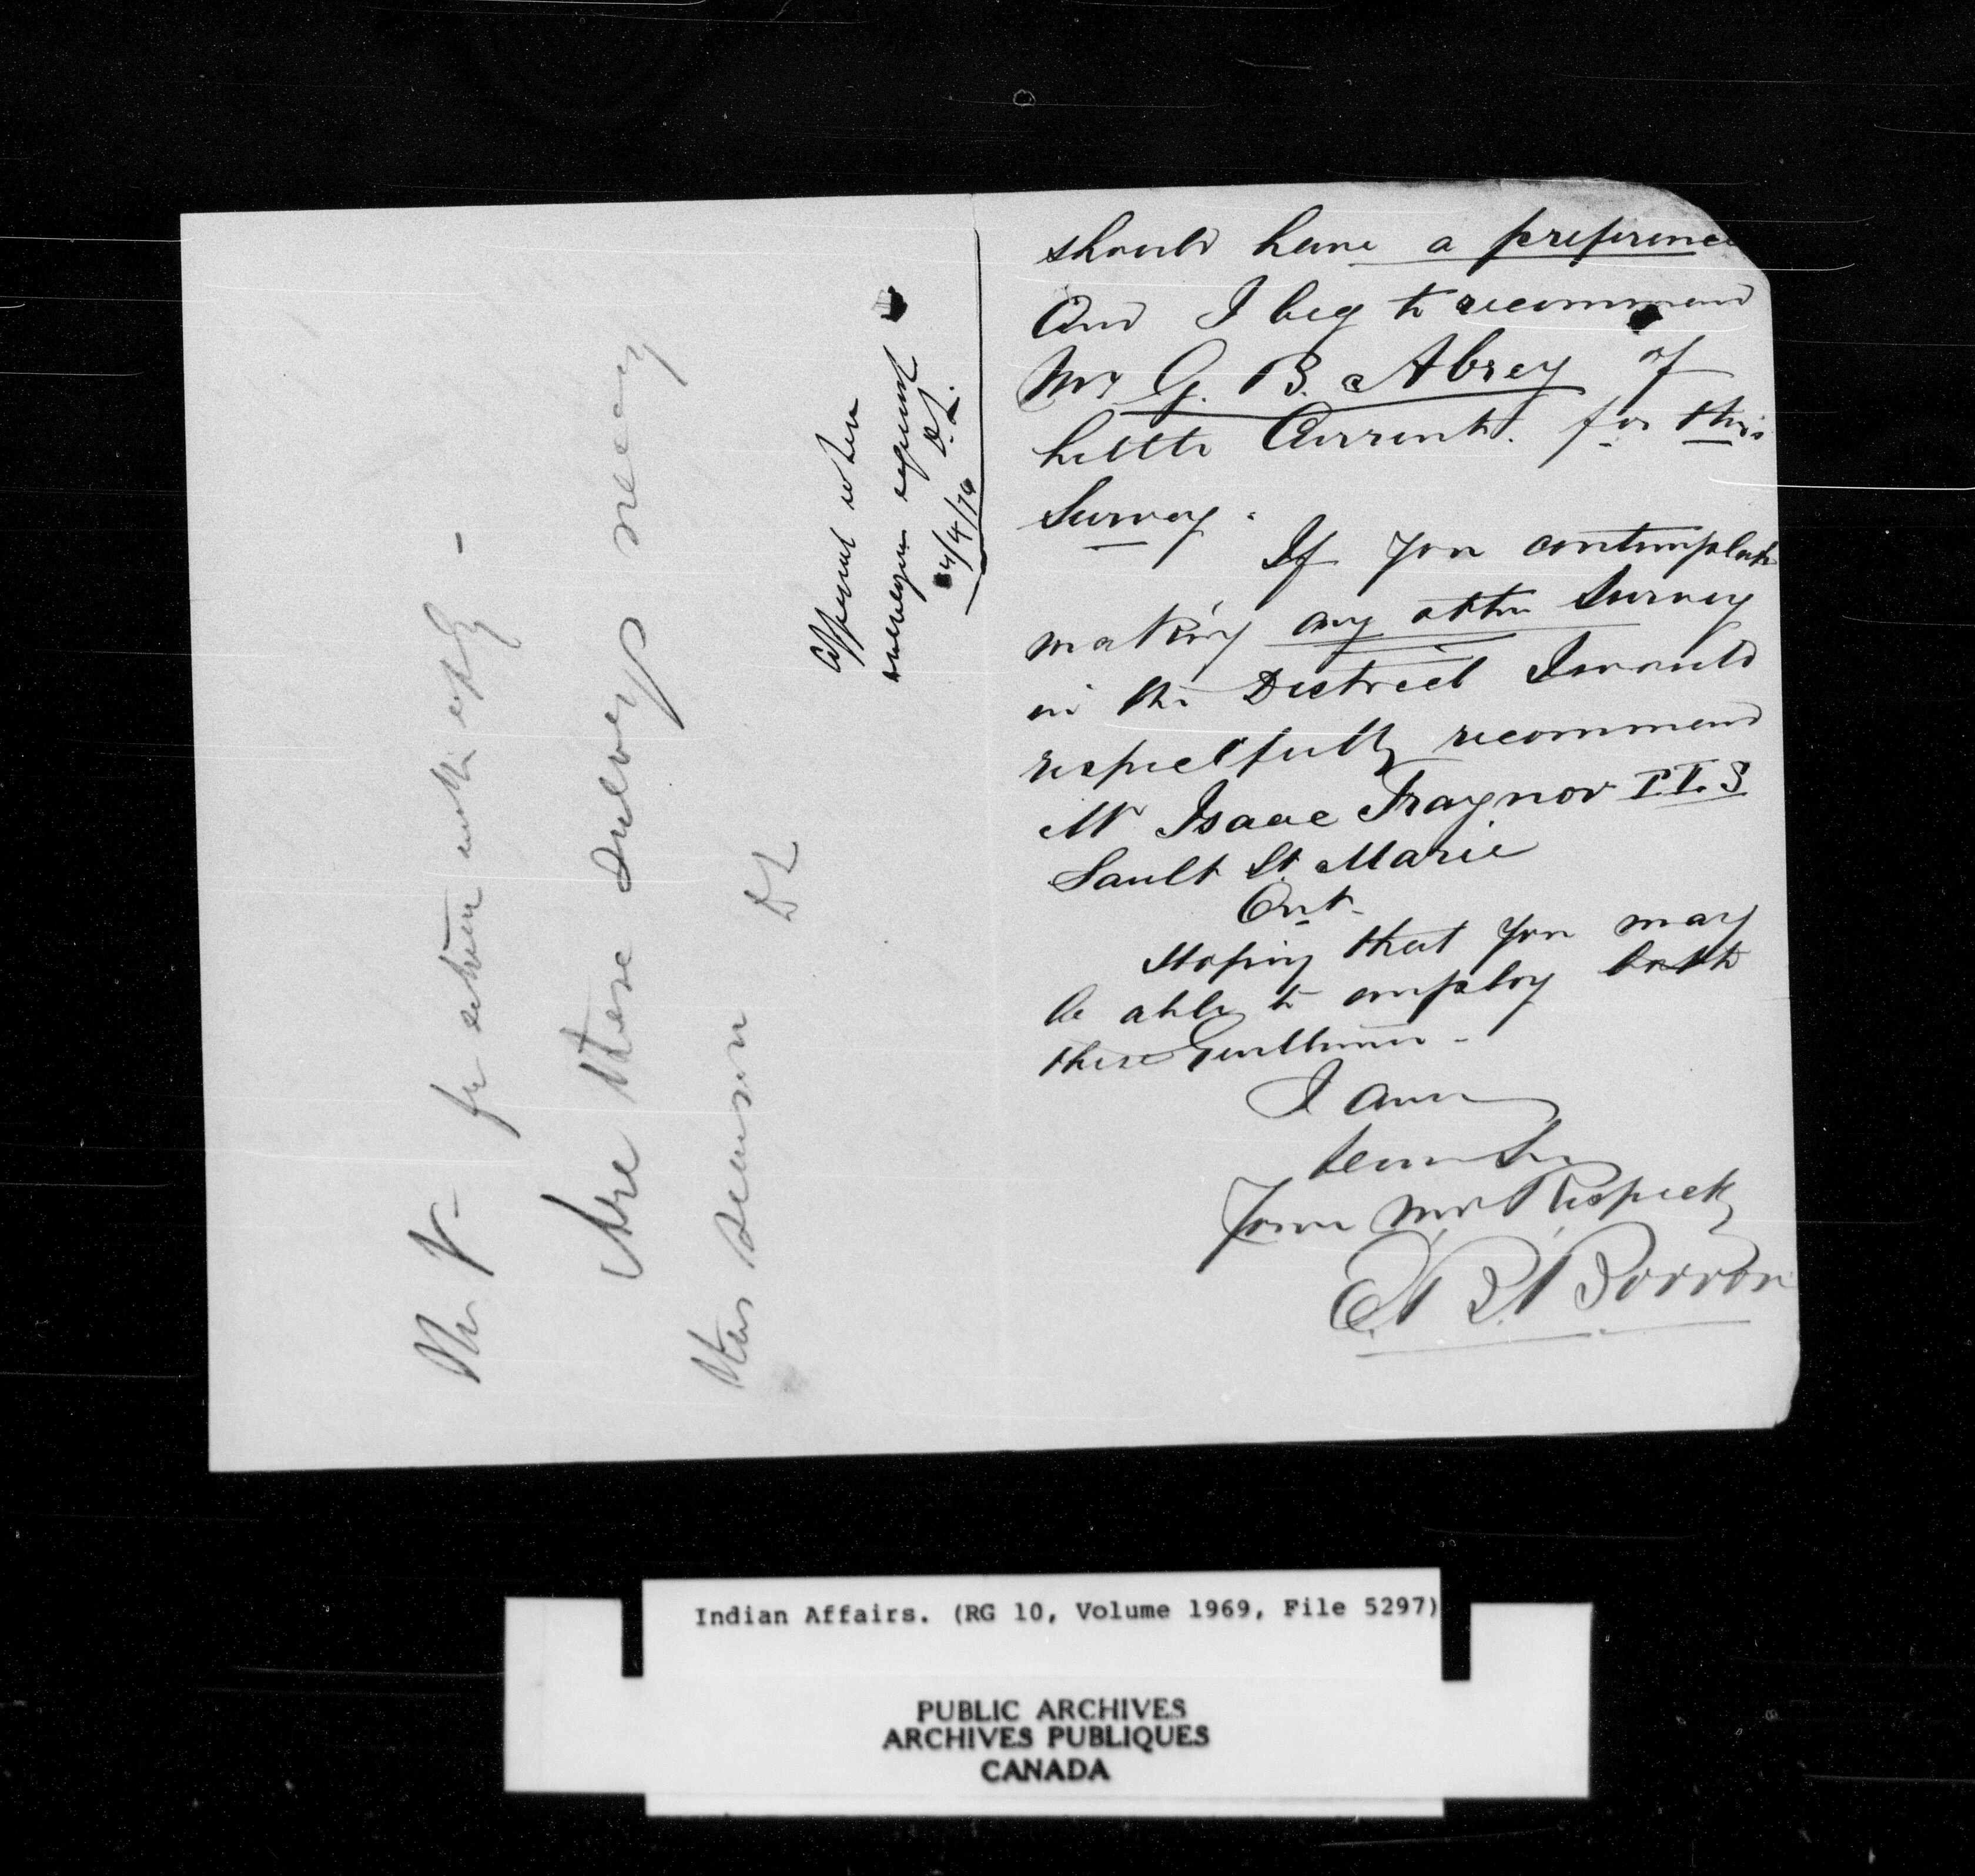 should have a preference
And I beg to recommend
Mr G. B. Abrey of
Little Current. for this
Survey.
If you contemplate
making any other Survey
in the District I would
respectfully recommend
Mr Isaac Traynor P.L.S
Sault St Marie
Ont.
Hoping that you may
be able to employ both
these Gentlemen -
I am
Dear Sir
Yours Mo Respectly
E. B. Borron
Mr V - for return with reply -
Are these Surveys necery
this season DL
Appoint when
surveyor required
D.L.
/4/76
Indian Affairs. (RG 10, Volume 1969, File 5297)
PUBLIC ARCHIVES
ARCHIVES PUBLIQUES
CANADA